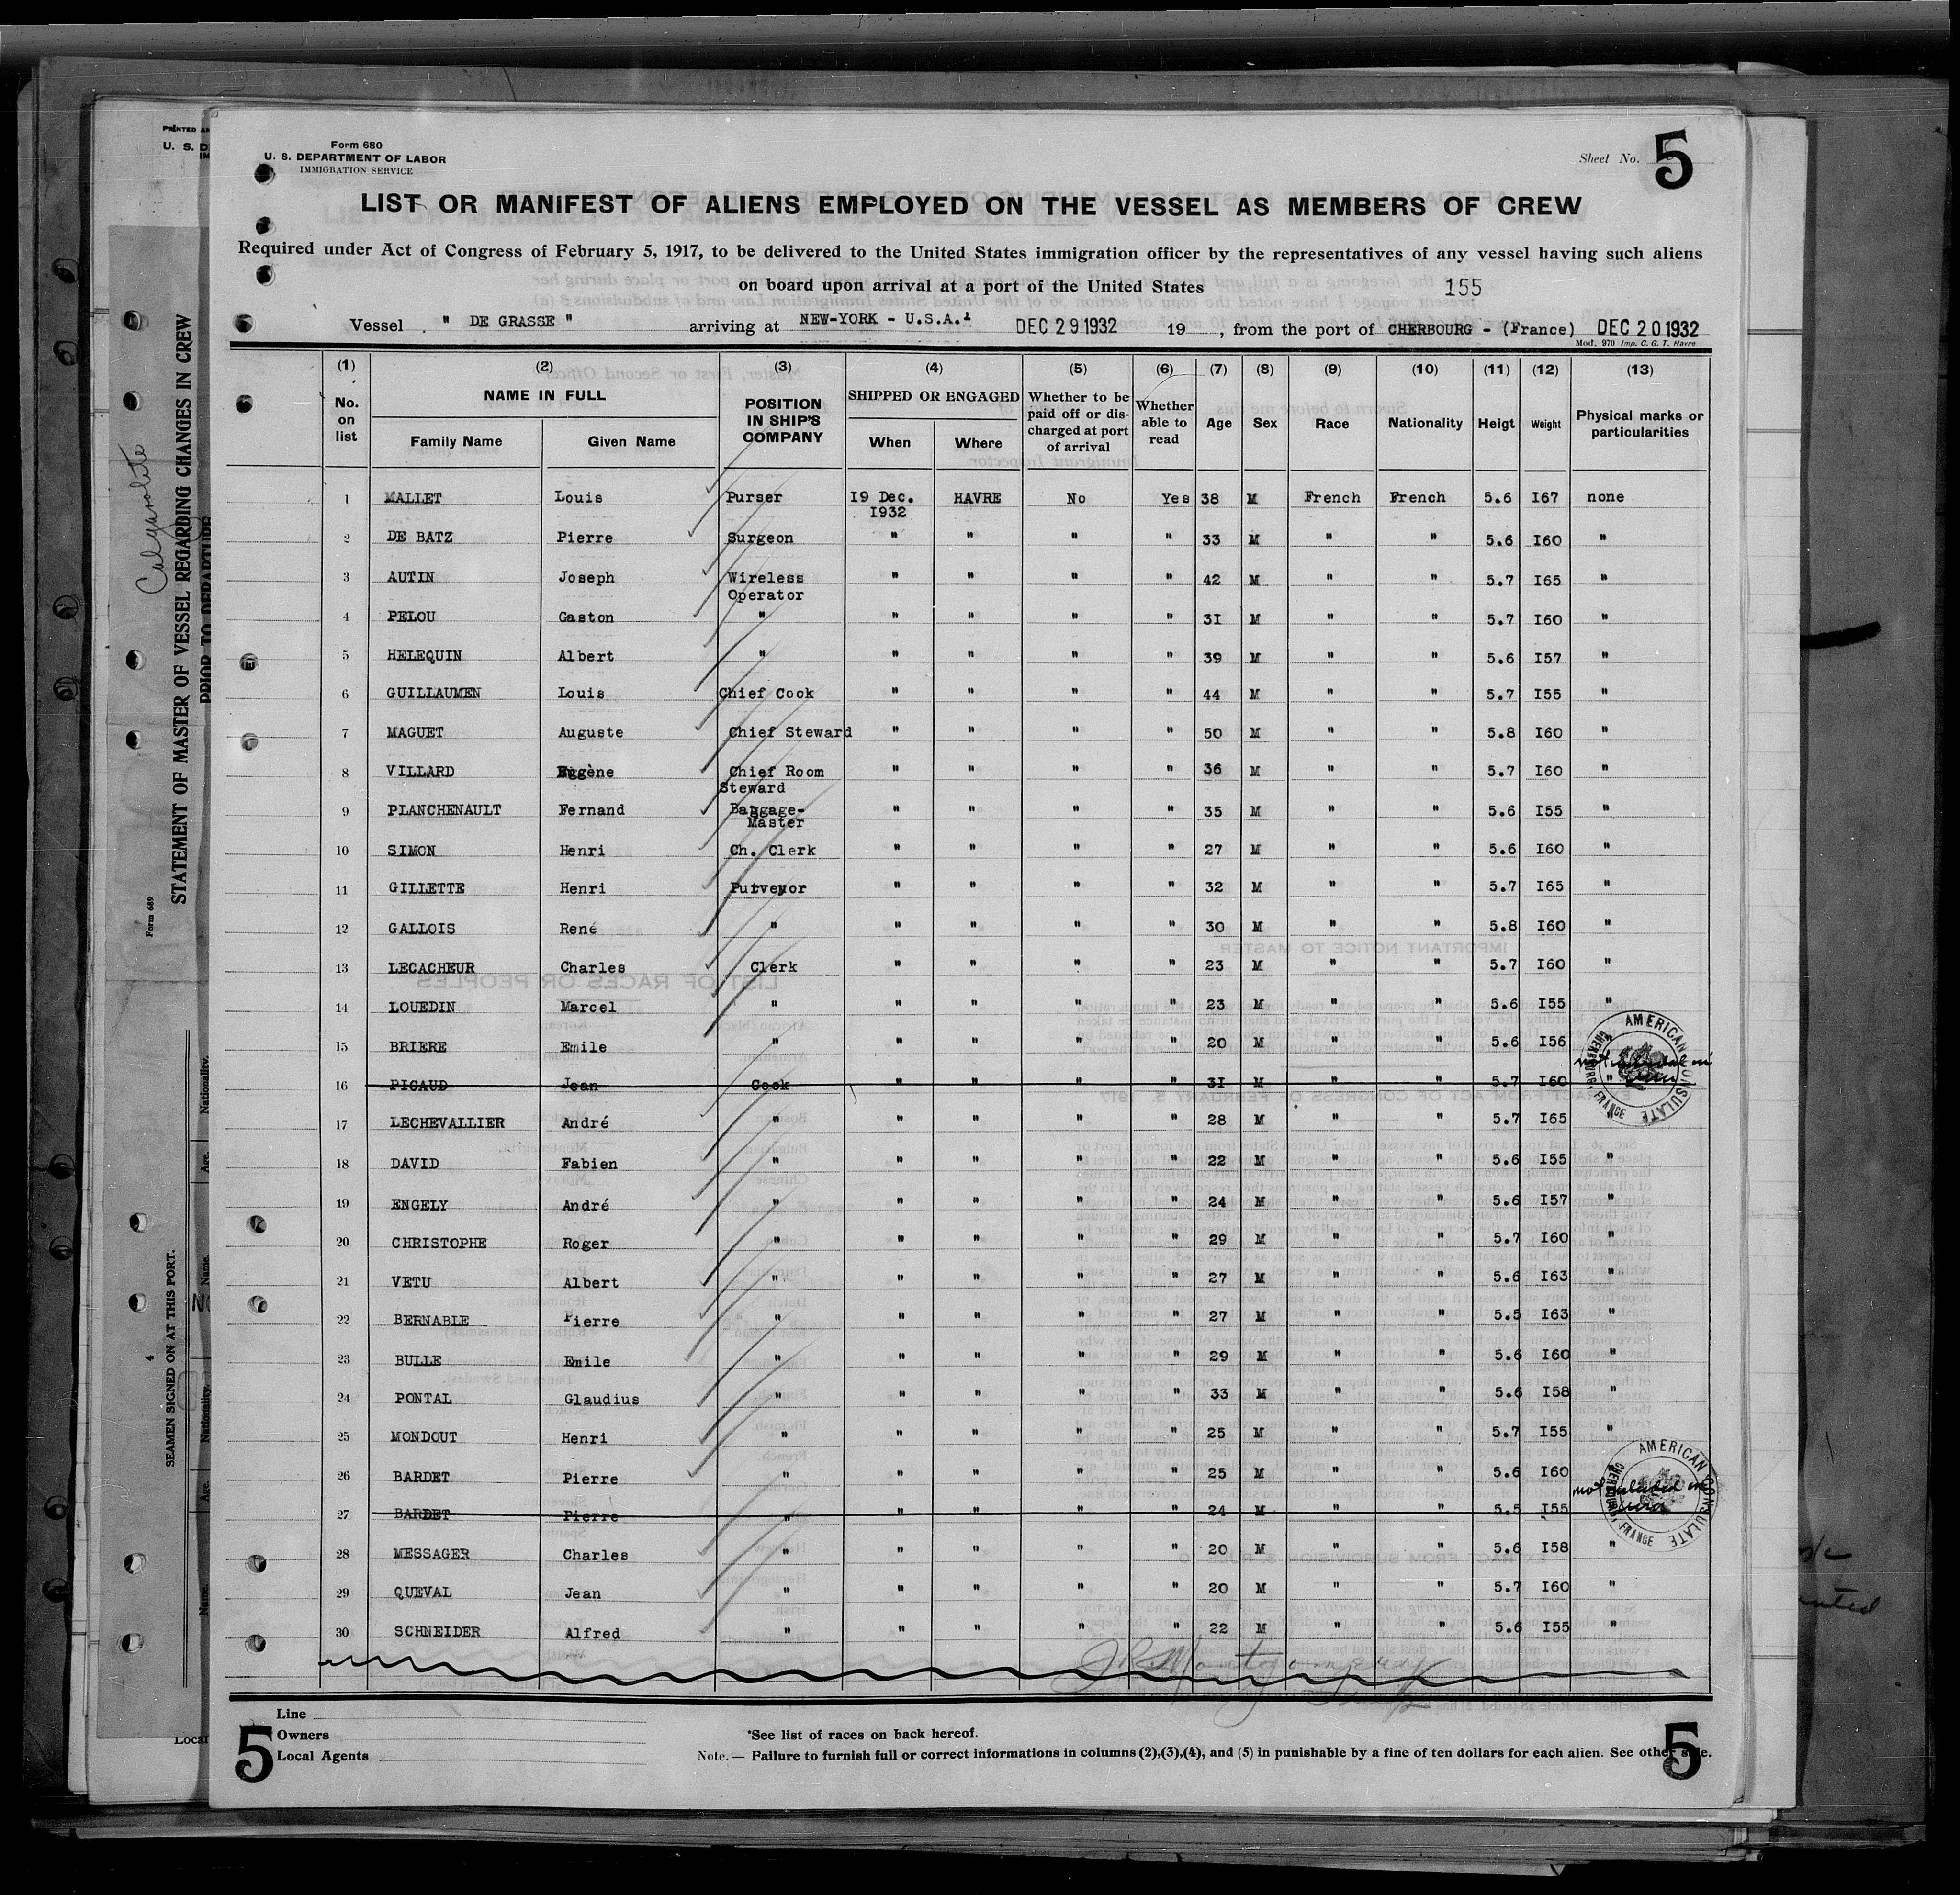 Form 680
U. S. DEPARTMENT OF LABOR
IMMIGRATION SERVICE
Sheet No. 5
LIST OR MANIFEST OF ALIENS EMPLOYED ON THE VESSEL AS MEMBERS OF CREW
Required under Act of Congress of February 5, 1917, to be delivered to the United States immigration officer by the representatives of any vessel having such aliens
on board upon arrival at a port of the United States
155
Vessel " DE GRASSE " arriving at NEW-YORK - U.S.A. DEC 29 1932 19 , from the port of CHERBOURG - (France) DEC 20 1932
Mod. 970 Imp. C. G. T. Havre
(1) (2) (3) (4) (5) (6) (7) (8) (9) (10) (11) (12) (13)
No. on list NAME IN FULL Family Name Given Name POSITION IN SHIP'S COMPANY SHIPPED OR ENGAGED When Where Whether to be paid off or discharged at port of arrival Whether able to read Age Sex Race Nationality Heigt Weight Physical marks or particularities
1 MALLET Louis Purser I9 Dec. I932 HAVRE No Yes 38 M French French 5.6 I67 none
2 DE BATZ Pierre Surgeon " " " " 33 M " " 5.6 I60 "
3 AUTIN Joseph Wireless Operator " " " " 42 M " " 5.7 I65 "
4 PELOU Gaston " " " " " 3I M " " 5.7 I60 "
5 HELEQUIN Albert " " " " " 39 M " " 5.6 I57 "
6 GUILLAUMEN Louis Chief Cook " " " " 44 M " " 5.7 I55 "
7 MAGUET Auguste Chief Steward " " " " 50 M " " 5.8 I60 "
8 VILLARD Eugène Chief Room Steward " " " " 36 M " " 5.7 I60 "
9 PLANCHENAULT Fernand Baggage-Master " " " " 35 M " " 5.6 I55 "
10 SIMON Henri Ch. Clerk " " " " 27 M " " 5.6 I60 "
11 GILLETTE Henri Purveyor " " " " 32 M " " 5.7 I65 "
12 GALLOIS René " " " " " 30 M " " 5.8 I60 "
13 LECACHEUR Charles Clerk " " " " 23 M " " 5.7 I60 "
14 LOUEDIN Marcel " " " " " 23 M " " 5.6 I55 "
15 BRIERE Emile " " " " " 20 M " " 5.6 I56
16 PICAUD Jean Cook " " " " 3I M " " 5.7 I60 "
AMERICAN CONSULATE CHERBOURG, FRANCE
17 LECHEVALLIER André " " " " " 28 M " " 5.7 I65 "
18 DAVID Fabien " " " " " 22 M " " 5.6 I55 "
19 ENGELY André " " " " " 24 M " " 5.6 I57 "
20 CHRISTOPHE Roger " " " " " 29 M " " 5.7 I60 "
21 VETU Albert " " " " " 27 M " " 5.6 I63 "
22 BERNABLE Pierre " " " " " 27 M " " 5.5 I63 "
23 BULLE Emile " " " " " 29 M " " 5.6 I60 "
24 PONTAL Glaudius " " " " " 33 M " " 5.6 I58 "
25 MONDOUT Henri " " " " " 25 M " " 5.7 I55 "
26 BARDET Pierre " " " " " 25 M " " 5.6 I60
27 BARDET Pierre " " " " " 24 M " " 5.5 I55
not included in visa
AMERICAN CONSULATE CHERBOURG, FRANCE
28 MESSAGER Charles " " " " " 20 M " " 5.6 I58 "
29 QUEVAL Jean " " " " " 20 M " " 5.7 I60 "
30 SCHNEIDER Alfred " " " " " 22 M " " 5.6 I55 "
Line
Owners
Local Agents
5
*See list of races on back hereof.
Note. — Failure to furnish full or correct informations in columns (2),(3),(4), and (5) in punishable by a fine of ten dollars for each alien. See other side.
5
Form 689
STATEMENT OF MASTER OF VESSEL REGARDING CHANGES IN CREW
PRIOR TO DEPARTURE
SEAMEN SIGNED ON AT THIS PORT.
Name. Nationality. Age. Name. Nationality. Age.